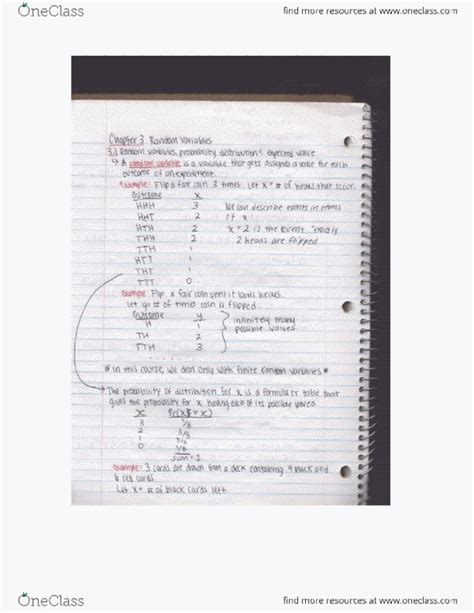 OneClass
find more resources at www.oneclass.com
Chapter 3 Random Variables
3.1 Random variables, probability distributions & expected value
↳ A random variable is a variable that gets assigned a value for each
outcome of an experiment.
Example: Flip a fair coin 3 times. Let X = # of heads that occur.
Outcome X
HHH 3 We can describe events in terms
HHT 2 of X
HTH 2 X = 2 is the event "exactly
THH 2 2 heads are flipped
TTH 1
HTT 1
THT 1
TTT 0
Example: Flip a fair coin until it lands heads.
Let y = # of times coin is flipped.
Outcome y
H 1 infinitely many
TH 2 possible values
TTH 3
* In this course, we deal only with finite random variables *
The probability of distribution for X is a formula or table that
gives the probability for X having each of its possible values.
X Pr(X = x)
3 1/8
2 3/8
1 3/8
0 1/8
sum = 1
Example: 3 cards are drawn from a deck containing 4 black and
6 red cards.
Let X = # of black cards left.
OneClass
find more resources at www.oneclass.com